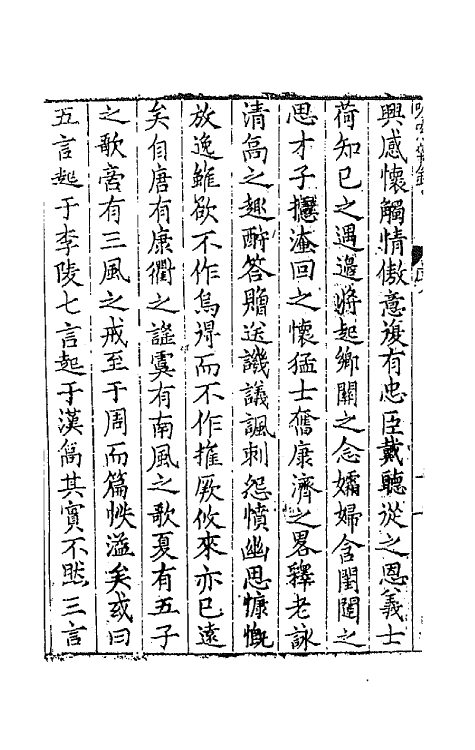 興感懷觸情傲意復有忠臣戴聽從之恩義士
荷知已之遇邉將起鄉關之念孀婦含閨閫之
思才子攄淹回之懷猛士奮康濟之畧釋老詠
清高之趣酧答贈送譏議諷刺怨憤幽思慷慨
放逸雖欲不作烏得而不作推厥攸來亦已遠
矣自唐有康衢之謡虞有南風之歌夏有五子
之歌啇有三風之戒至于周而篇帙溢矣或曰
五言起于李陵七言起于漢寫其實不然三言